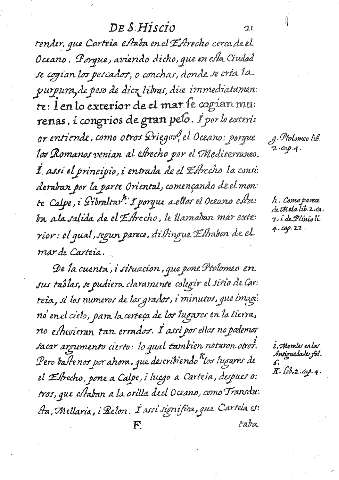 DE S. HISCIO 21
tender, que Carteia estaba en el Estrecho cerca de el
Oceano. Porque, aviendo dicho, que en esta Ciudad
se cogian los pescados, o conchas, donde se cria la
purpura, de peso de diez libras, dice immediatamen-
te: I en lo exterior de el mar se cogian mu-
renas, i congrios de gran peso. I por lo exteri-
or entiende, como otros Griegos g, el Oceano: porque
los Romanos venian al estrecho por el Mediterraneo.
I assi el principio, i entrada de el Estrecho la consi-
deraban por la parte Oriental, començando de el mon-
te Calpe, i Gibraltar h. I porque a ellos el Oceano esta-
ba a la salida de el Estrecho, le llamaban mar exte-
rior: el qual, segun parece, distingue Estabon de el
mar de Carteia.
De la cuenta, i situacion, que pone Ptolomeo en
sus tablas, se pudiera claramente colegir el sitio de Car-
teia, si los numeros de los grados, i minutos, que imagi-
nò en el cielo, para la certeça de los lugares en la tierra,
no estuvieran tan errados. I assi por ellos no podemos
sacar argumento cierto: lo qual tambien notaron otros i.
Pero bastenos por ahora, que describiendo K los lugares de
el Estrecho, pone a Calpe, i luego a Carteia, despues o-
tros, que estaban a la orilla de el Oceano, como Transdu-
cta, Mellaria, i Belon. I assi significa, que Carteia es-
F. taba
g. Ptolomeo lib.
2. cap. 4.
h. Como pone
de Mela lib. 2. ca.
i de Plinio li
4. cap. 22
i. Morales en las
Antiguedades fol.
K. lib. 2. cap. 4.